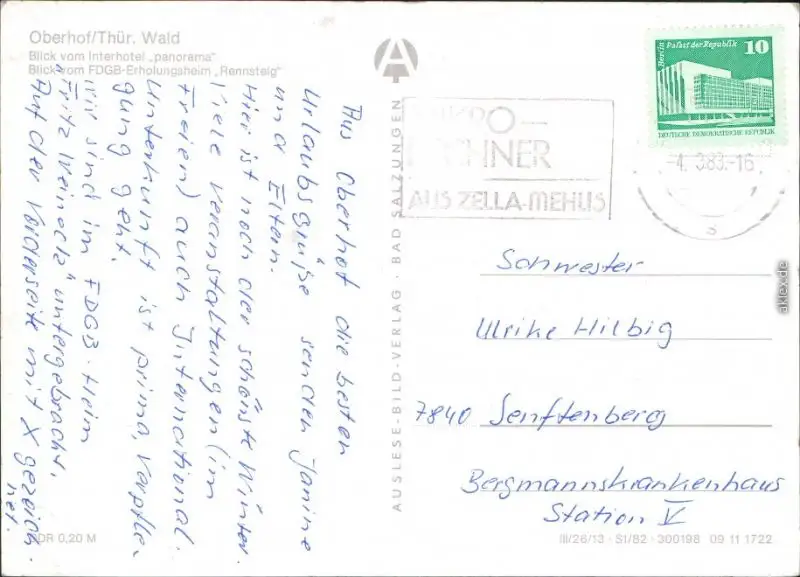 Oberhof/Thür. Wald
Blick vom Interhotel „panorama"
Blick vom FDGB-Erholungsheim „Rennsteig"
Aus Oberhof die besten
Urlaubsgrüße senden Janine
und Eltern.
Hier ist noch der schönste Winter.
Viele Veranstaltungen (im
Freien) auch International.
Unterkunft ist prima, Verpfle-
gung geht.
Wir sind im FDGB-Heim
"Fritz Weineck" untergebracht.
Auf der Vorderseite mit X gezeich-
net.
DDR 0,20 M
AUSLESE-BILD-VERLAG · BAD SALZUNGEN
AUS ZELLA-MEHLIS
Berlin Palast der Republik 10
DEUTSCHE DEMOKRATISCHE REPUBLIK
83.-16
Schwester
Ulrike Hilbig
7840 Senftenberg
Bergmannskrankenhaus
Station V
III/26/13 · SI/82 · 300198 09 11 1722
aklex.de